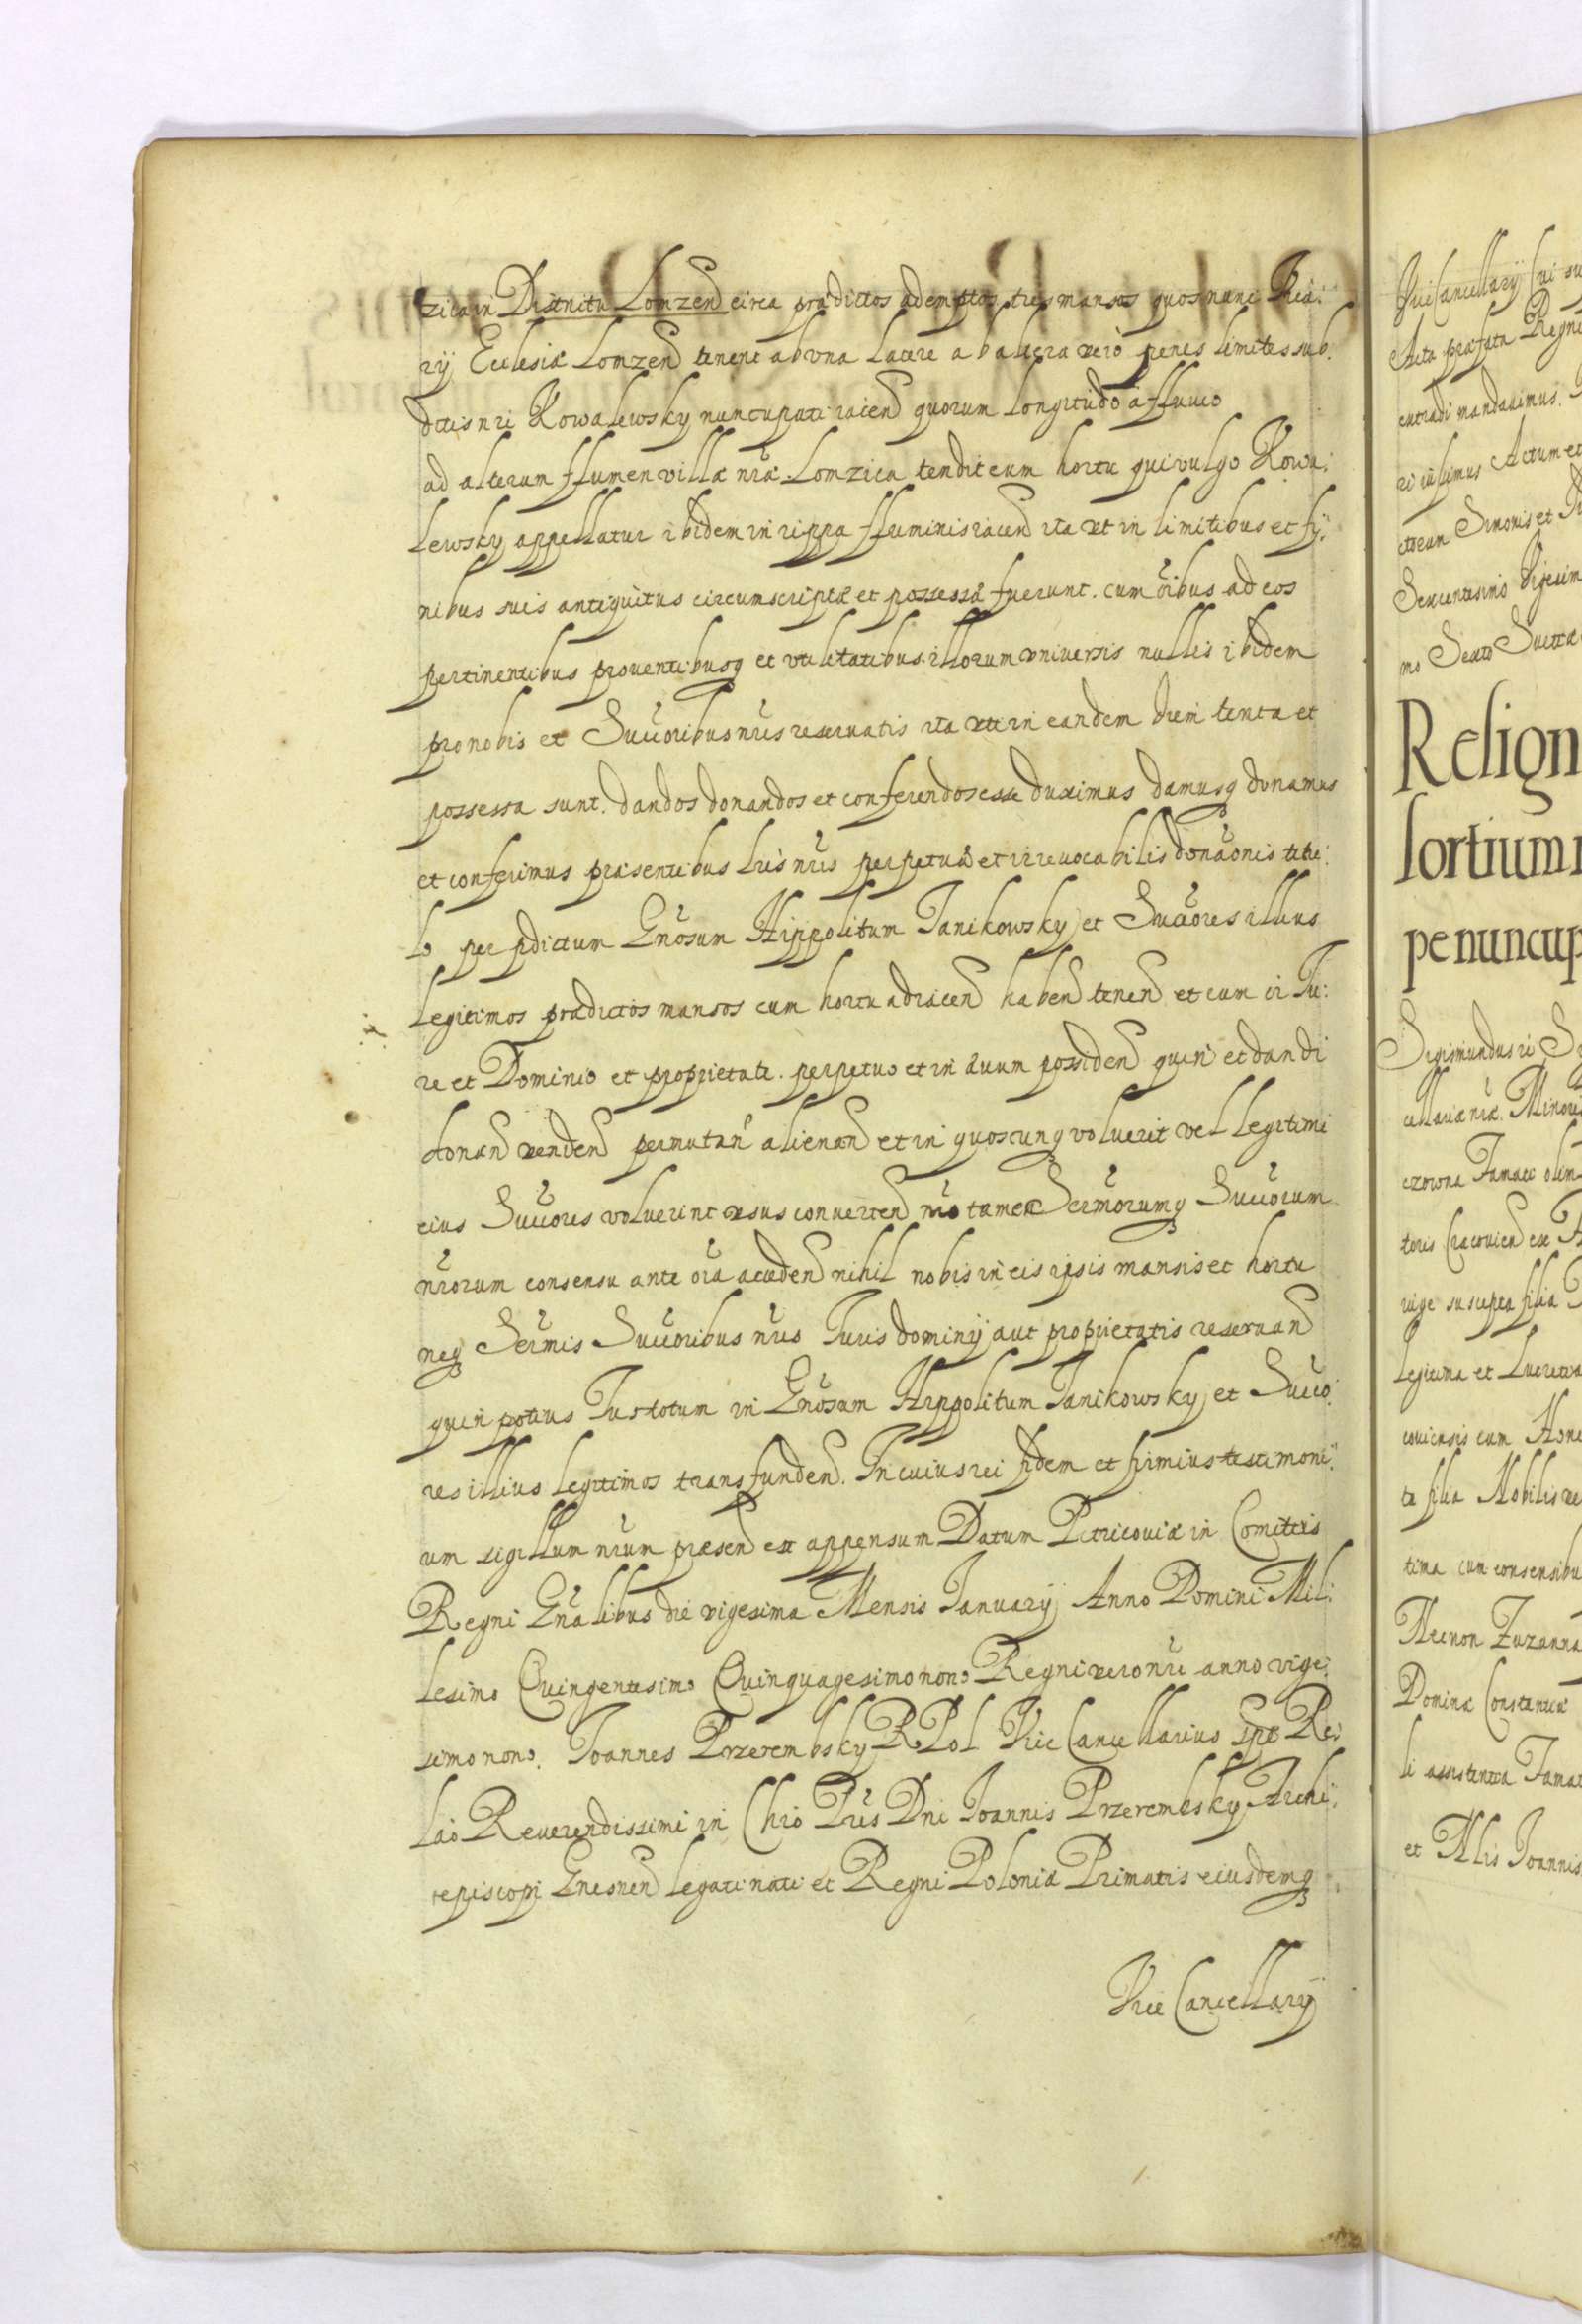 zica in Districtu Lomzen circa prædictos ademptos tres mansos quos nunc Vica:
rij Ecclesiæ Lomzen tenent ab una latere ab altera vero penes limites sub:
dctis nri Kowalewsky nuncupati iacen quorum longitudo a fluuio
ad alterum flumen villæ nræ Lomzica tendit cum hortu qui vulgo Kowa:
lewsky appellatur ibidem in rippa fluminis iacen ita ut in limitibus et fij:
nibus suis antiquitus circumscriptæ et possessæ fuerunt. cum oibus ad eos
pertinentibus prouentibusq et utilitatibus illorum universis nullis ibidem
pro nobis et Succoribus nris reseruatis ita uti in eandem diem tenta et
possessa sunt. dandos donandos et conferendos esse duximus damusq donamus
et conferimus præsentibus lris nris perpetuæ et irreuocabilis donaonis titu:
lo per pdictum Gnosum Hippolitum Janikowsky et Succores illius
legitimos prædictos mansos cum hortu adiacen haben tenen et cum oi Ju:
re et Dominio et proprietate. perpetuo et in æuum possiden quin et dandi
donan venden permutan alienan et in quoscunq voluerit vel legitimi
eius Succores voluerint usus conuerten nro tamen Sermorumq Succorum
nrorum consensu ante oia acceden nihil nobis in eis ipsis mansis et hortu
neq Sermis Succoribus nris Juris dominij aut proprietatis reseruan
quin potius Jus totum in Gnosum Hippolitum Janikowsky et Succo:
res illius legitimos transfunden. In cuius rei fidem et firmius testimoni:
um sigillum nrum præsen est appensum Datum Petricouiæ in Comitiis
Regni Gnalibus die vigesima Mensis Januarij Anno Domini Mil:
lesimo Quingentesimo Quinquagesimo nono Regni vero nri anno vige:
simo nono. Joannes Przerembsky R. Pol Vice Cancellarius Spt Re:
lao Reuerendissimi in Chro Pris Dni Joannis Przerembsky Archi:
episcopi Gnesnen legati nati et Regni Poloniæ Primatis eiusdemq
Vice Cancellarij
Vice Cancellarij Cui su
Acta præfata Regni
extradi mandauimus.
ri iussimus Actum et
Simonis et Ju
Sexcentesimo Vigesim
mo Sexto Sueciæ
Relign
sortium
pe nuncup
Sigismundus
cellariæ nræ. Minori
Famati olim
toris Cracouien ex
uige suscepta filia
Legitima et Lucretia
couiensis cum Hone
ta filia Nobilis
tima cum consensibu
Necnon Zuzanna
Dominæ Constantiæ
li assistentia Famat
et Alis Joannis